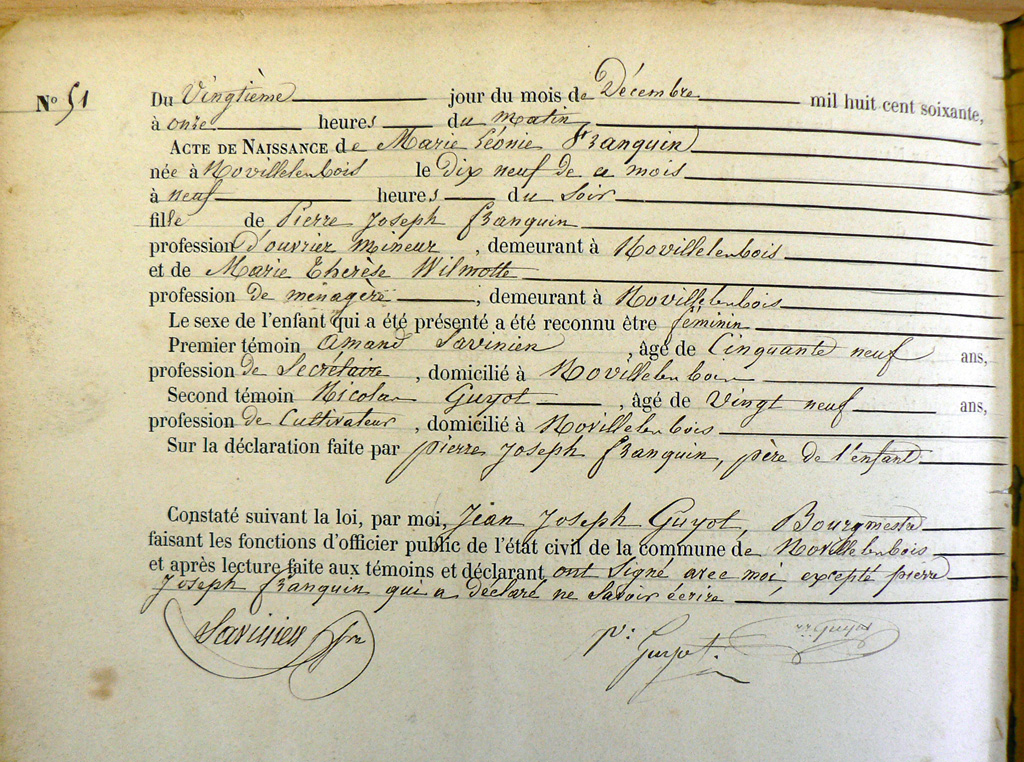 N° 51
Du Vingtième jour du mois de Décembre mil huit cent soixante,
à onze heures du matin,
ACTE DE NAISSANCE de Marie Léonie Franquin
née à Novillelenbois le dix neuf de ce mois
à neuf heures du soir
fille de Pierre Joseph Franquin
profession d'ouvrier mineur, demeurant à Novillelenbois
et de Marie Therèse Wilmotte
profession de ménagère, demeurant à Novillelenbois
Le sexe de l'enfant qui a été présenté a été reconnu être féminin
Premier témoin Amand Savinien, âgé de Cinquante neuf ans,
profession de Secrétaire, domicilié à Novillelenbois
Second témoin Nicolas Guyot, âgé de Vingt neuf ans,
profession de Cultivateur, domicilié à Novillelenbois
Sur la déclaration faite par pierre Joseph Franquin, père de l'enfant
Constaté suivant la loi, par moi, Jean Joseph Guyot, Bourgmestre
faisant les fonctions d'officier public de l'état civil de la commune de Novillelenbois
et après lecture faite aux témoins et déclarant ont signé avec moi, excepté pierre
Joseph Franquin qui a déclaré ne savoir écrire
Savinien
Guyot.
Guyot